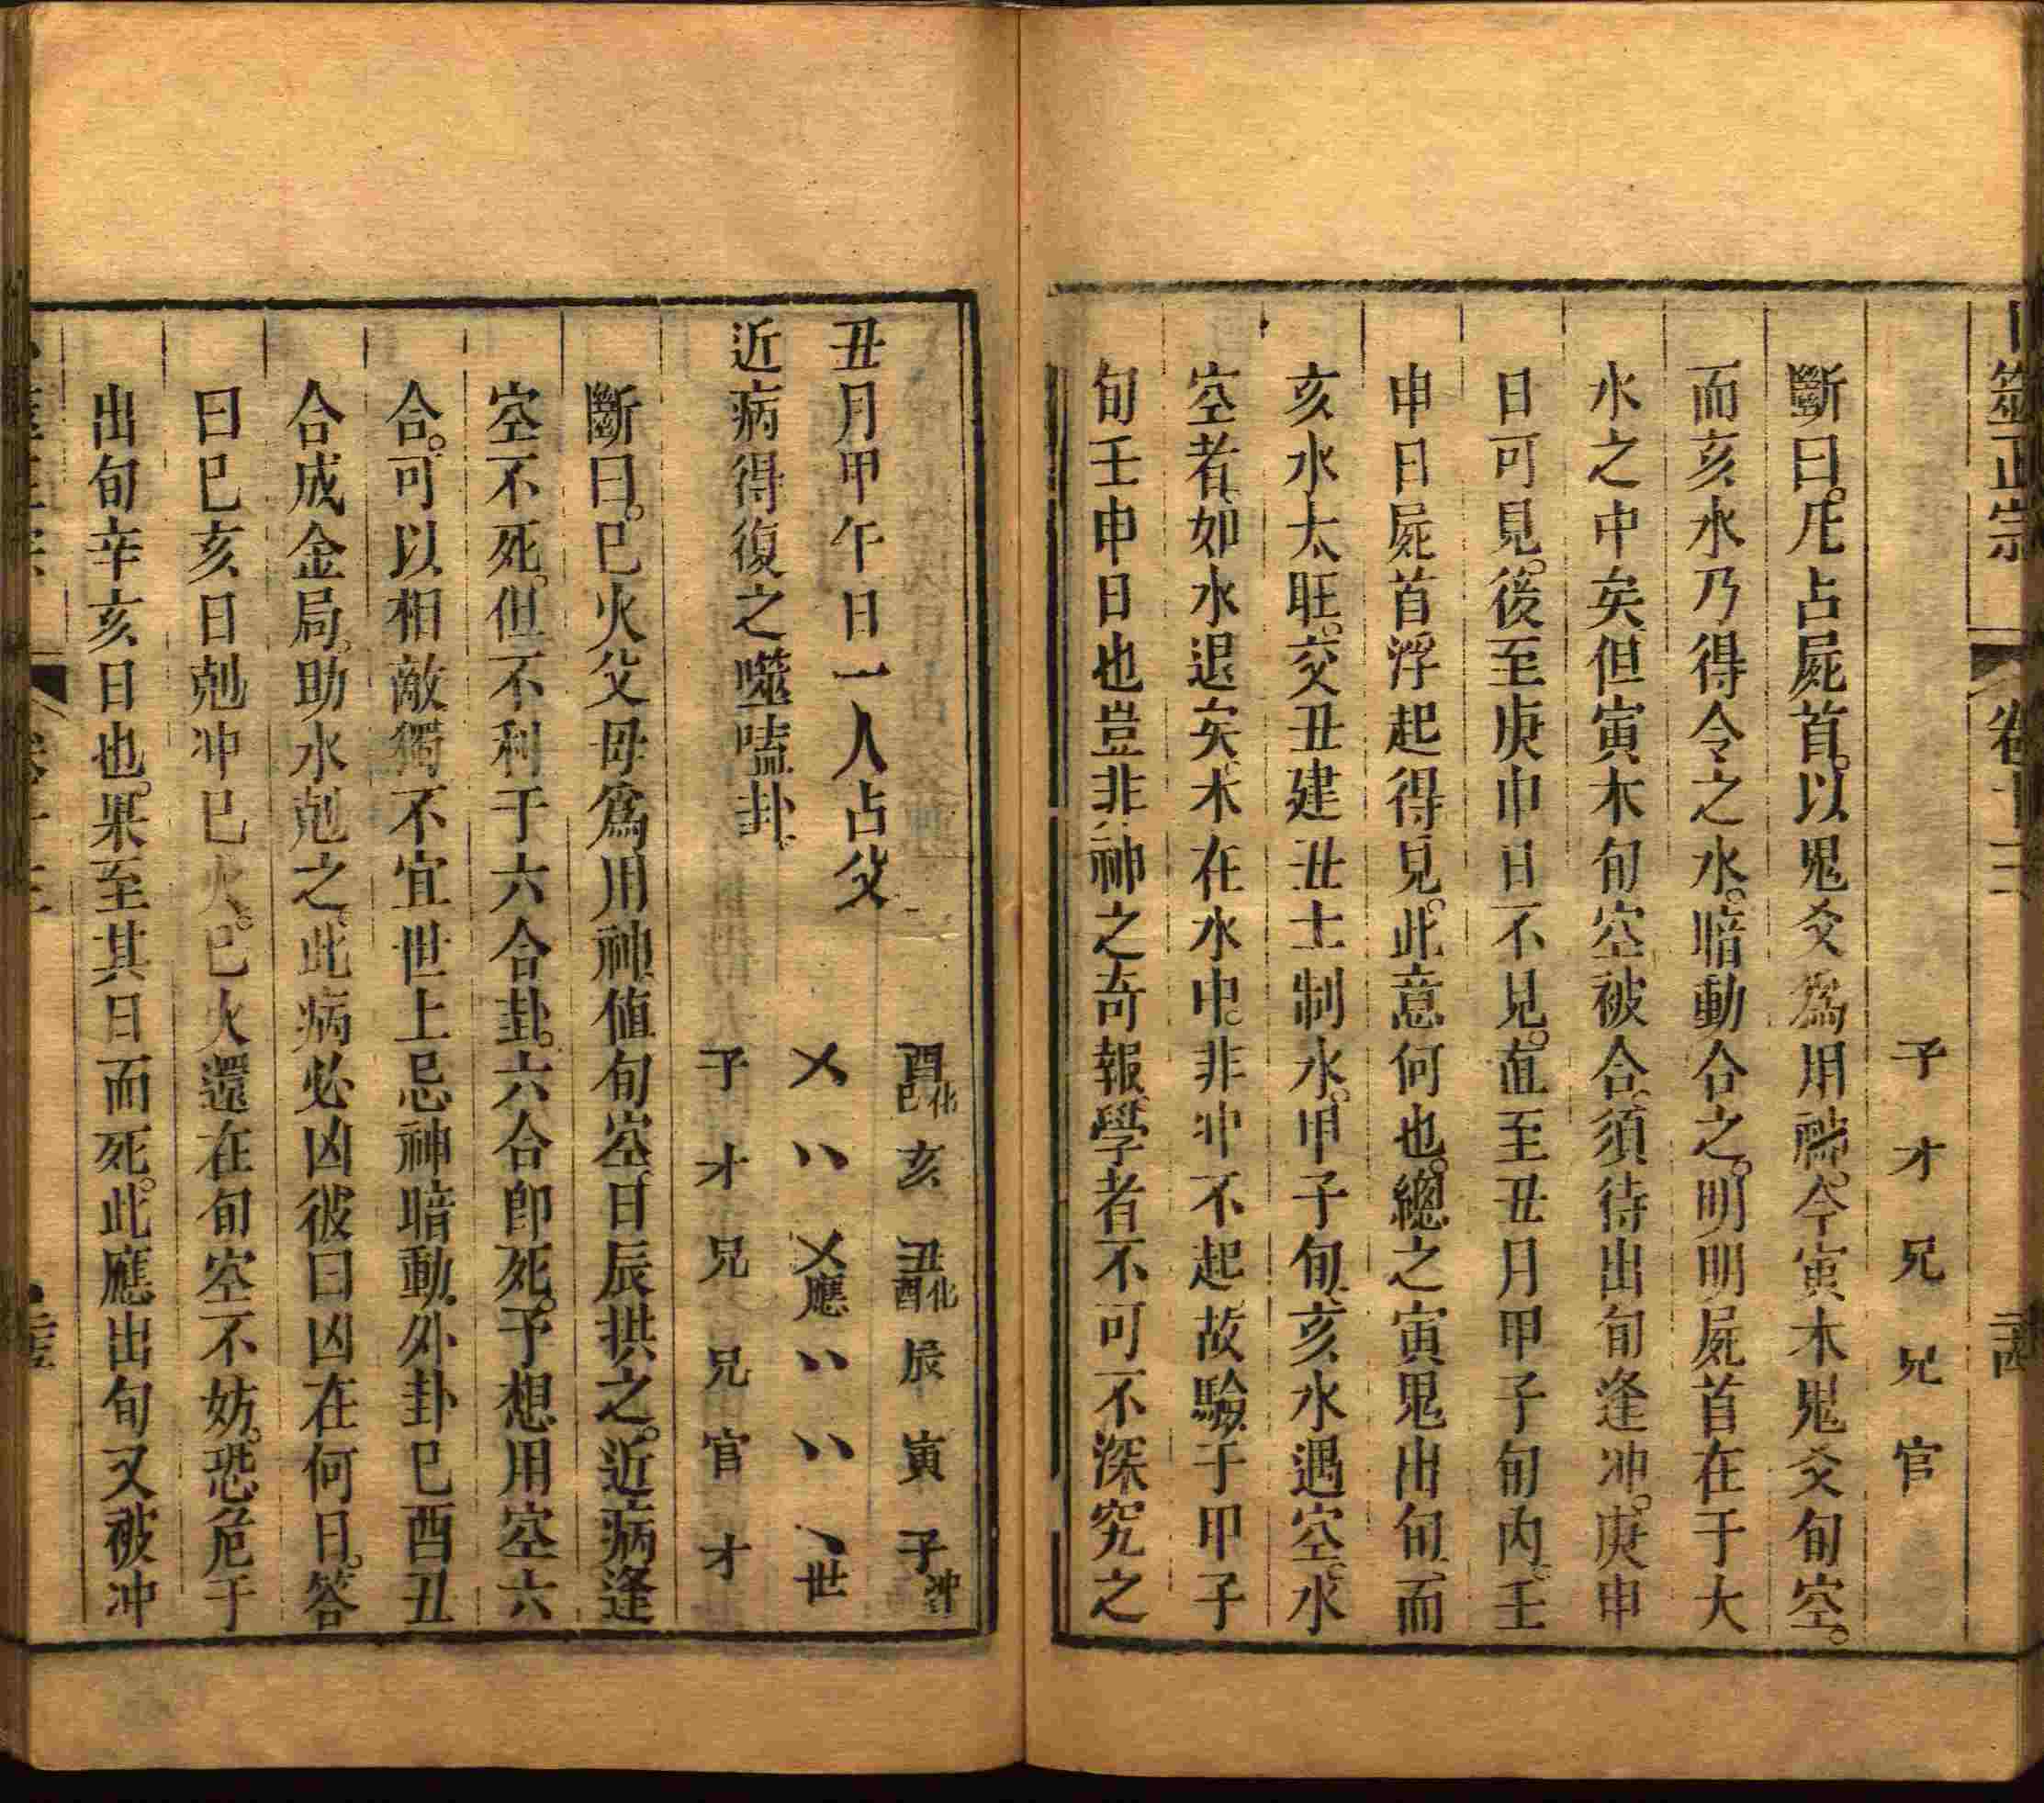 筮正宗
卷十三
子才兄兄官
斷曰。凡占屍首。以鬼爻爲用神。今寅木鬼爻旬空。
而亥水乃得令之水。暗動合之。明明屍首在于大
水之中矣但寅木旬空被合。須待出旬逢冲。庚申
日可見。後至庚申日不見。直至丑月甲子旬內。壬
申日屍首浮起得見。此意何也。總之寅鬼出旬。而
亥水太旺。交丑建丑土制水。甲子旬。亥水遇空。水
空者。如水退矣。木在水中。非冲不起。故驗于甲子
旬壬申日也豈非神之奇報。學者不可不深究之
丑月甲午日一人占父
近病得復之噬嗑卦
酉化巳 亥 丑化酉 辰 寅 子冲
㐅 〃 㐅應 〃 〃 、世
子 才 兄 兄 官 才
斷曰。巳火父母爲用神。値旬空。日辰拱之。近病逢
空不死。但不利于六合卦。六合卽死。予想用空六
合。可以相敵獨不宜世上忌神暗動。外卦巳酉丑
合成金局。助水尅之。此病必凶彼曰凶在何日。答
曰巳亥日尅冲巳火。巳火還在旬空不妨。恐危于
出旬辛亥日也。果至其日而死。此應出旬又被冲